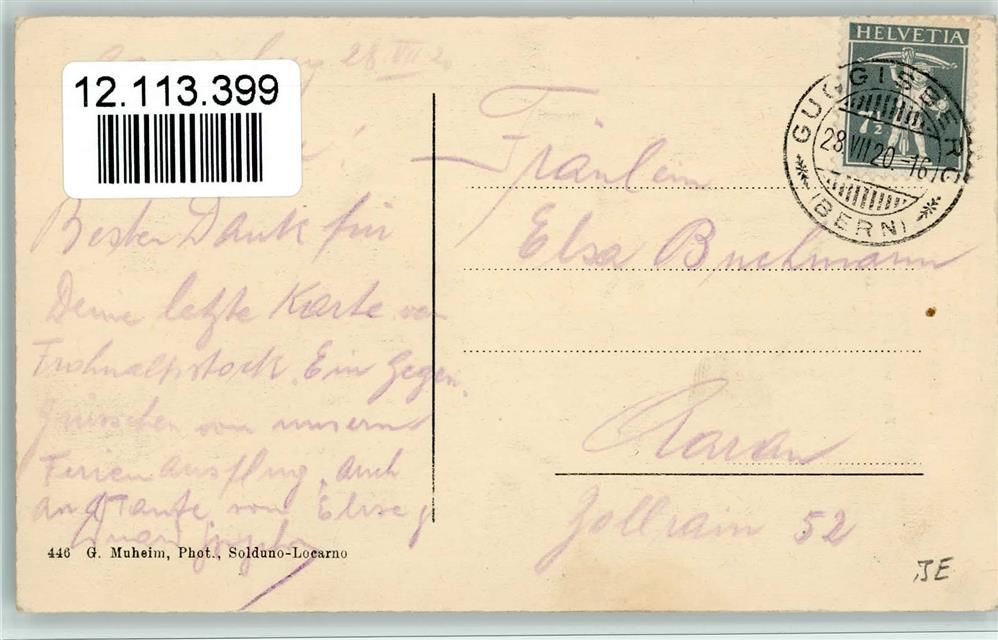 28.VII 20
12.113.399
Bester Dank für
Deine letzte Karte von
Frohnalpstock. Ein Gegen-
grüsschen von unserm
Ferienausflug, auch
an Tante von
446 G. Muheim, Phot., Solduno-Locarno
HELVETIA
7½
GUGGISBERG
28.VII.20.-16
(BERN)
Fräulein
Elsa Buchmann
Aarau
Zollrain 52
JE